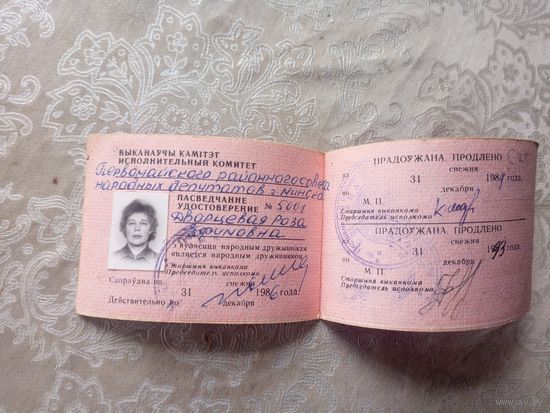 ВЫКАНАЎЧЫ КАМІТЭТ
ИСПОЛНИТЕЛЬНЫЙ КОМИТЕТ
Первомайского районного совета
народных депутатов г. Минска
ПАСВЕДЧАННЕ
УДОСТОВЕРЕНИЕ № 5001
Дворцевая Роза
Ефимовна
з'яўляецца народным дружыннікам
является народным дружинником
Старшыня выканкома
Председатель исполкома
Сапраўдна па снежня
31 1986 года.
Действительно по декабря
ПРАДОЎЖАНА, ПРОДЛЕНО
на снежня
31 198 года.
по декабря
М. П.
Старшыня выканкома
Председатель исполкома
ПРАДОЎЖАНА, ПРОДЛЕНО
на снежня
31 1993 года.
по декабря
М. П.
Старшыня выканкома
Председатель исполкома